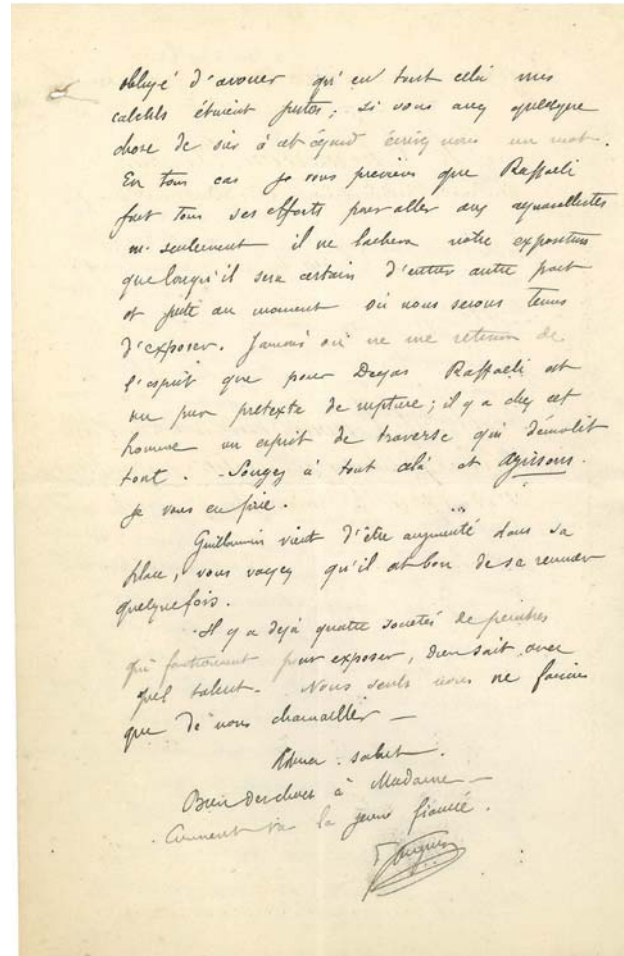 obligé d'avouer qu'en tout celà mes
calculs étaient justes; si vous avez quelque
chose de sûr à cet égard écrivez nous un mot.
En tous cas je vous préviens que Raffaeli
fait tous ses efforts pour aller aux aquarellistes
seulement il ne lachera notre exposition
que lorsqu'il sera certain d'entrer autre part
et juste au moment où nous serons tenus
d'exposer. Jamais on ne me retirera de
l'esprit que pour Degas Raffaeli est
un pur pretexte de rupture; il y a chez cet
homme un esprit de traverse qui démolit
tout. - Songez à tout celà et agissons.
je vous en prie.
Guillaumin vient d'être augmenté dans sa
place, vous voyez qu'il est bon de se remuer
quelquefois.
Il y a dejà quatre societés de peintres
qui fonctionnent pour exposer, Dieu sait avec
quel talent. Nous seuls nous ne faisons
que de nous chamailler -
salut.
Bien des choses à Madame -
Comment va la jeune fiancée.